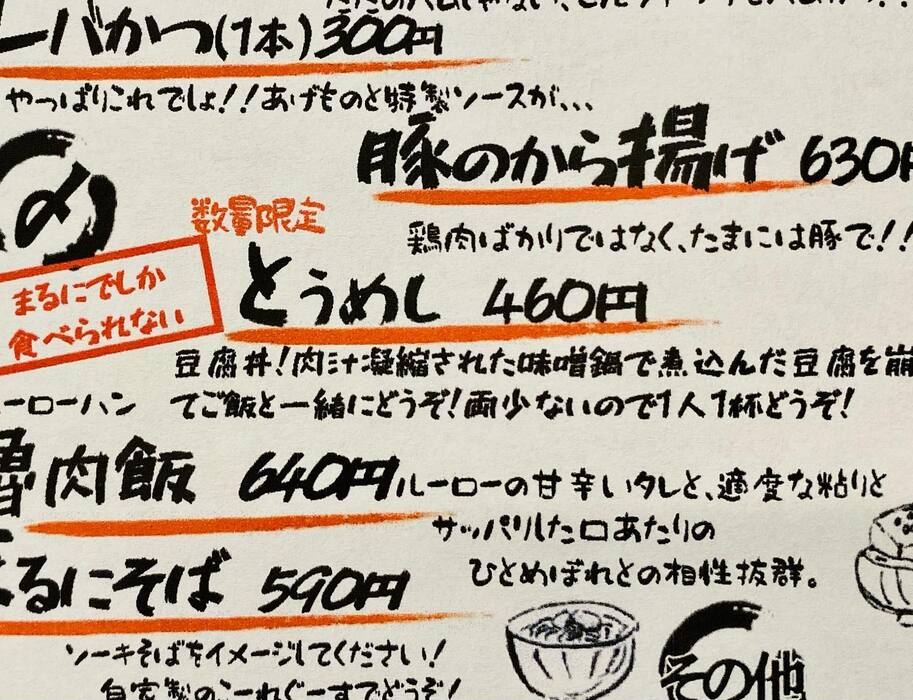 レバかつ(1本)300円
やっぱりこれでしょ!!あげものと特製ソースが、、、
豚のから揚げ 630円
鶏肉ばかりではなく、たまには豚で!!
〆
数量限定
まるにでしか
食べられない
とうめし 460円
豆腐丼!肉汁凝縮された味噌鍋で煮込んだ豆腐を崩
てご飯と一緒にどうぞ!両少ないので1人1杯どうぞ!
ーローハン
魯肉飯 640円
ルーローの甘辛いタレと、適度な粘りと
サッパリした口あたりの
ひとめぼれとの相性抜群。
まるにそば 590円
ソーキそばをイメージしてください!
自家製のこーれぐーすでどうぞ!
その他